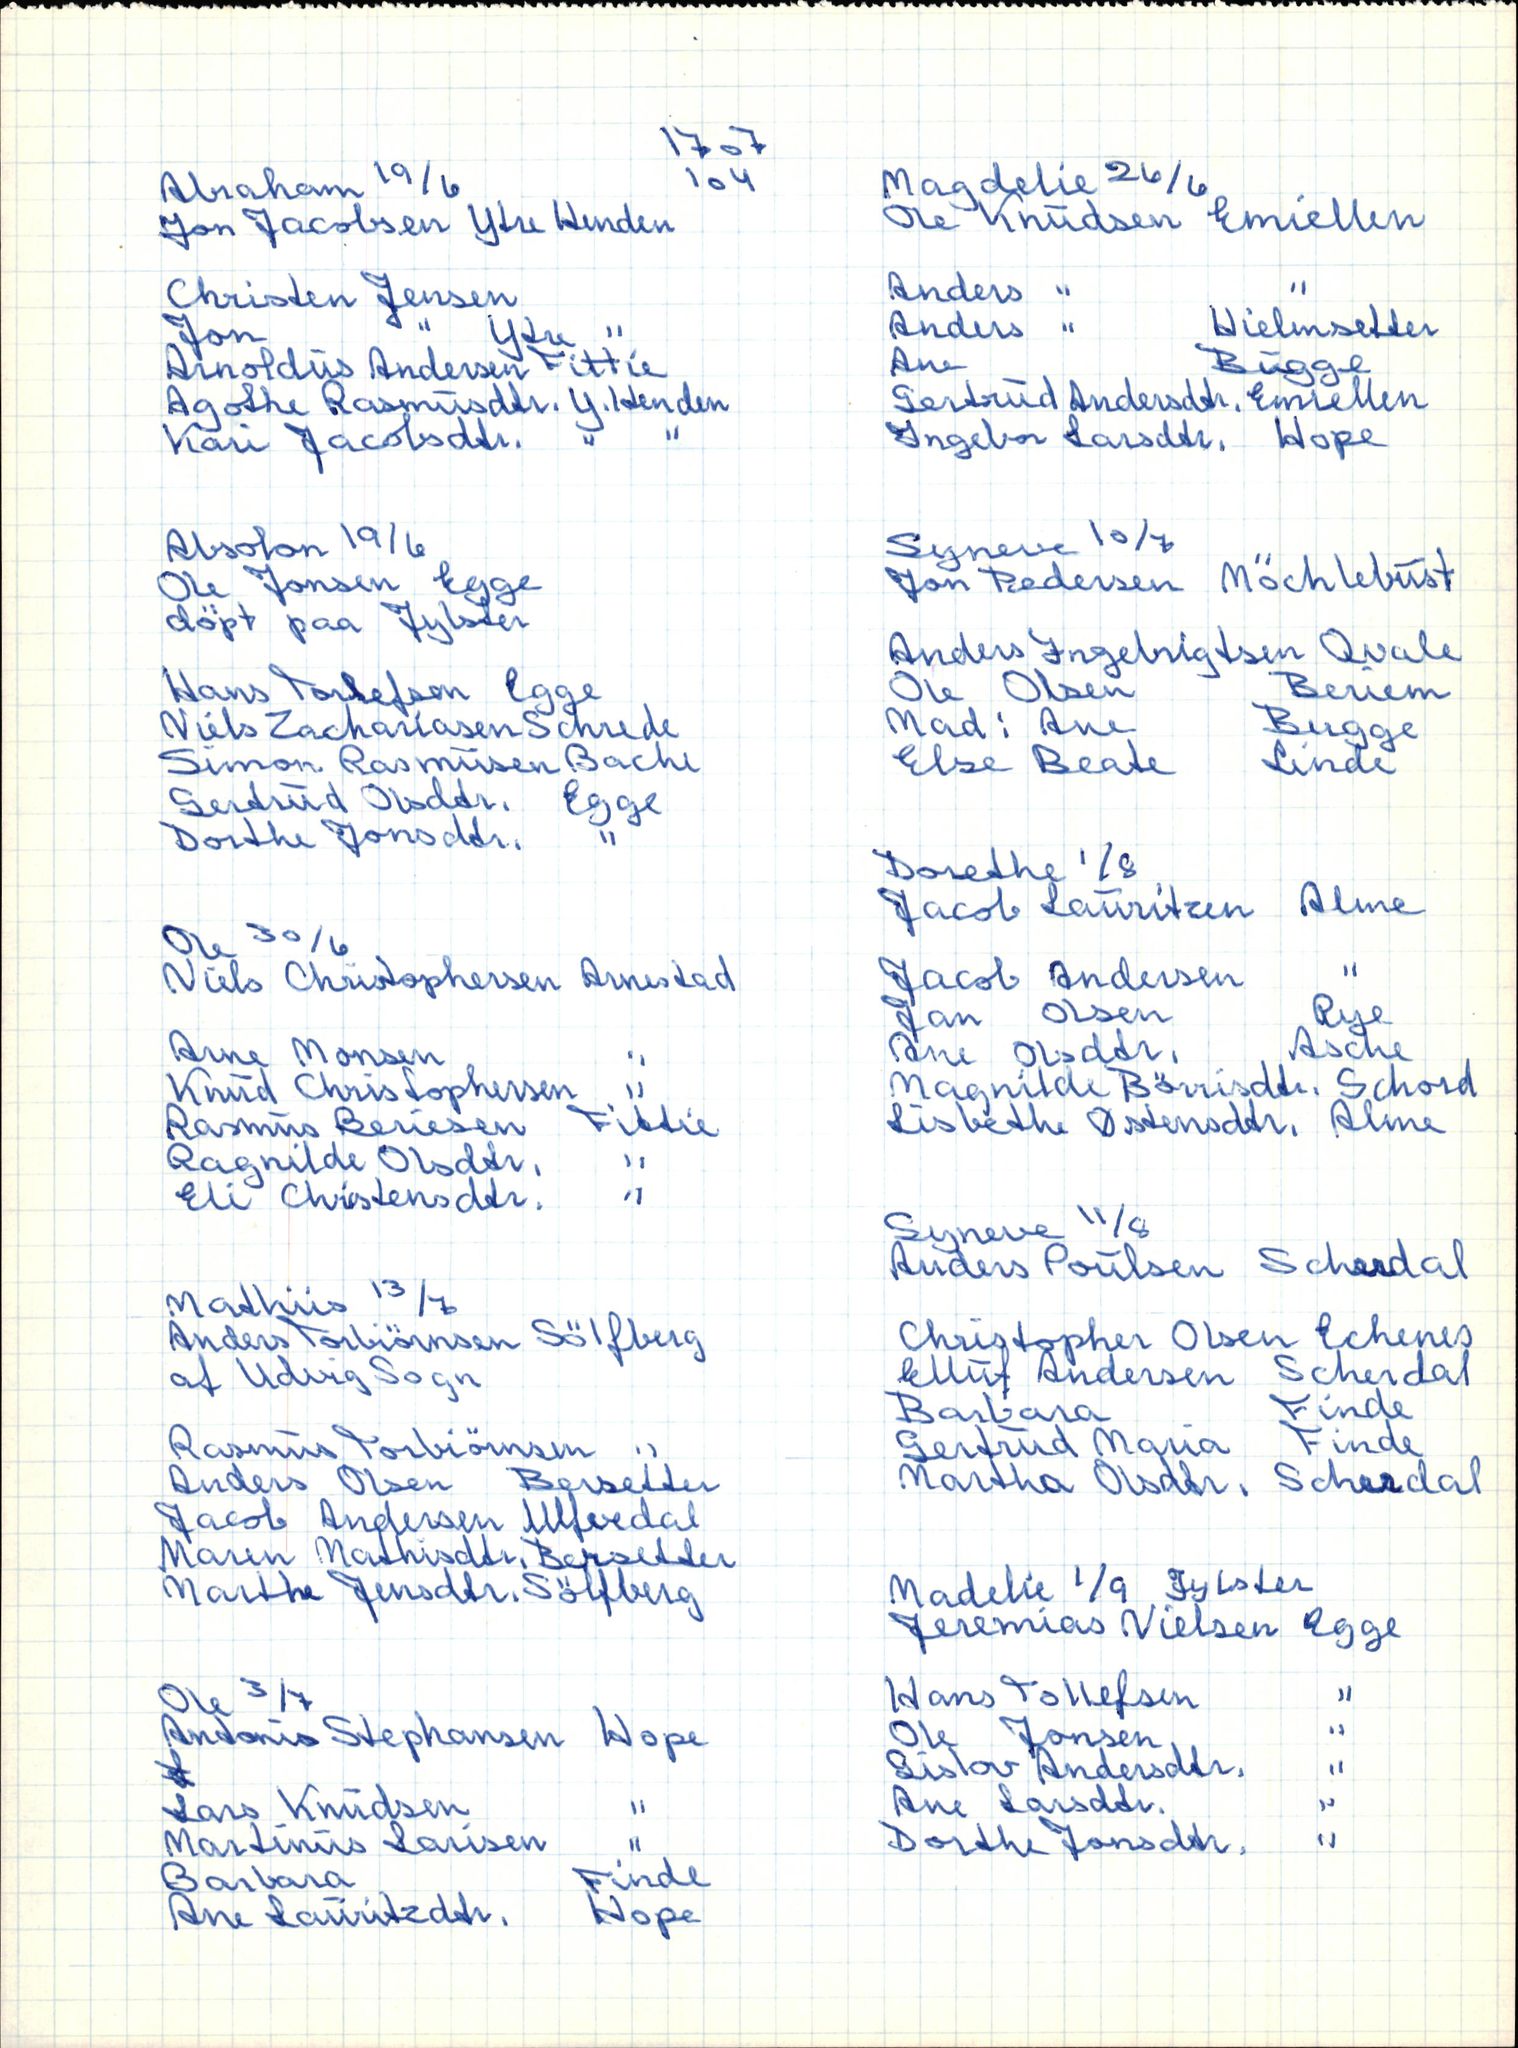 1707
104
Abraham 19/6
Jon Jacobsen Ytre Henden
Christen Jensen
Jon " Ytre "
Arnoldus Andersen Fittie
Agothe Rasmusdtr. Y. Henden
Kari Jacobsdtr. " "
Absolon 19/6
Ole Jonsen Egge
döpt paa Jylster
Hans Tollefsen Egge
Niels Zachariasen Schrede
Simon Rasmusen Bache
Gertrud Olsdtr. Egge
Dorthe Jonsdtr. "
Ole 30/6
Niels Christophersen Arnestad
Arne Monsen "
Knud Christophersen "
Rasmus Beriesen Fittie
Ragnilde Olsdtr. "
Eli Christensdtr. "
Mathiis 13/7
Anders Torbiörnsen Sölfberg
af Udvig Sogn
Rasmus Torbiörnsen "
Anders Olsen Bersetter
Jacob Andersen Ulfvedal
Maren Mathisdtr. Bersetter
Marthe Jensdtr. Sölfberg
Ole 3/7
Antonis Stephansen Hope
Lars Knudsen "
Martinus Larisen "
Barbara Finde
Ane Lauritzdtr. Hope
Magdelie 26/6
Ole Knudsen Emiellen
Anders " "
Anders " Hielmsetter
Ane Bugge
Gertrud Andersdtr. Emiellen
Ingebor Larsdtr. Hope
Syneve 10/7
Jon Pedersen Möchlebust
Anders Ingebrigtsen Qvale
Ole Olsen Beriem
Mad: Ane Bugge
Else Beate Linde
Dorethe 1/8
Jacob Lauritzen Alme
Jacob Andersen "
Jan Olsen Rye
Ane Olsdtr. Asche
Magnilde Börrisdtr. Schord
Lisbethe Østensdtr. Alme
Syneve 11/8
Anders Poulsen Scherdal
Christopher Olsen Echenes
Elluf Andersen Scherdal
Barbara Finde
Gertrud Maria Finde
Martha Olsdtr. Scherdal
Madelie 1/9 Jylster
Jeremias Nielsen Egge
Hans Tollefsen "
Ole Jonsen "
Sislov Andersdtr. "
Ane Larsdtr. "
Dorthe Jonsdtr. "